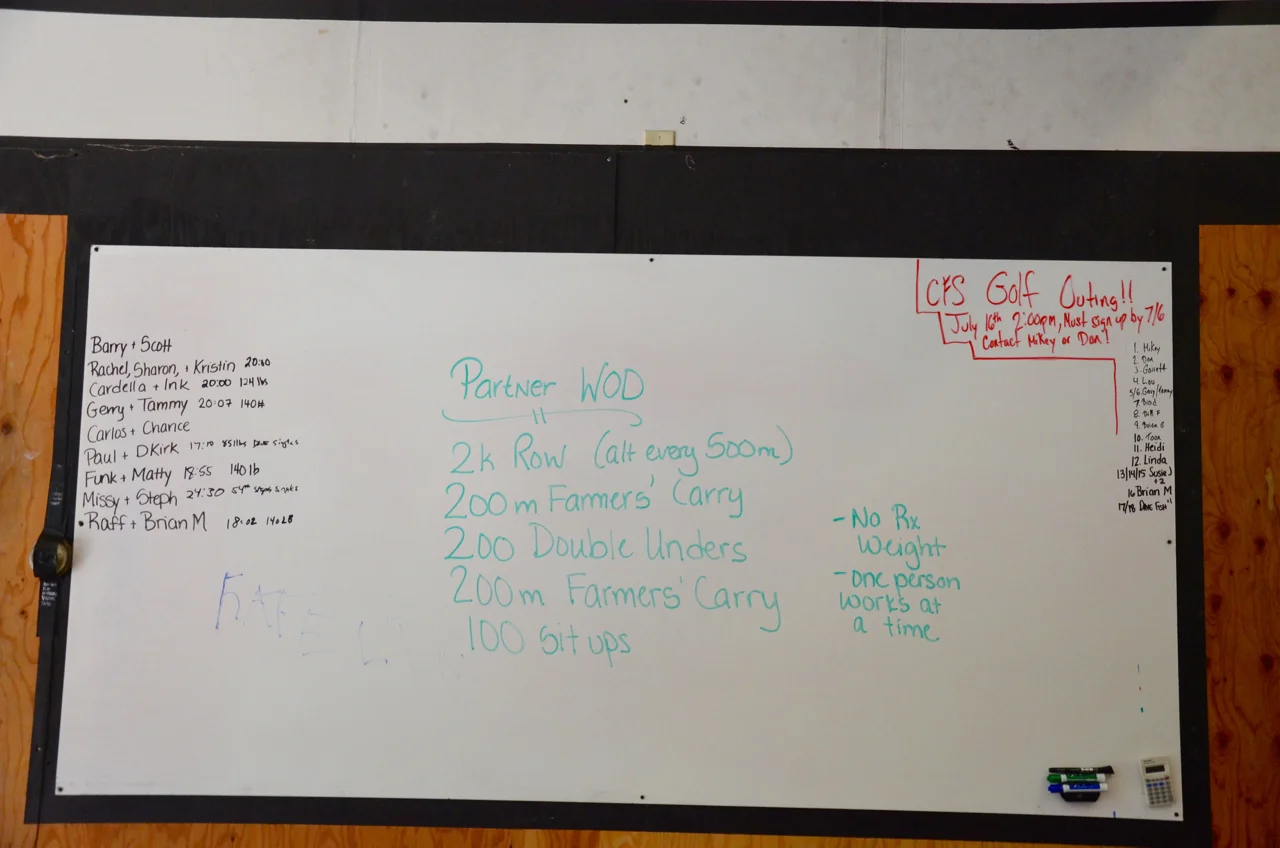 Barry + Scott
Rachel, Sharon, + Kristin 20:10
Cardella + Ink 20:00 124 lbs
Gerry + Tammy 20:07 140#
Carlos + Chance
Paul + DKirk 17:10 85lbs singles
Funk + Matty 18:55 140 lb
Missy + Steph 24:30
Raff + Brian M 18:02 140LB
Partner WOD
2k Row (alt every 500m)
200m Farmers' Carry
200 Double Unders
200m Farmers' Carry
100 Sit ups
- No Rx
Weight
- one person
works at
a time
CFS Golf Outing!!
July 16th 2:00pm, Must sign up by 7/6
Contact Mikey or Dan!
1. Mikey
2. Dan
3. Garrett
4. Lou
5/6. Gary/
7. Brad
8. Bill F
9. Brian G
10. Toon
11. Heidi
12. Linda
13/14/15 Susie J
+2
16 Brian M
17/18 Dave Fish +1